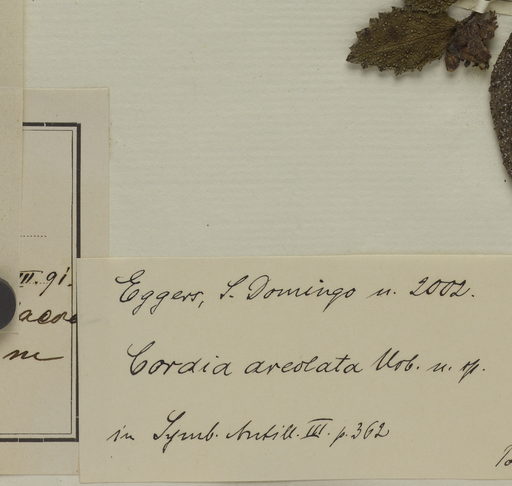 III. 91.
Eggers, S. Domingo n. 2002.
Cordia areolata Urb. n. sp.
in Symb. Antill. III. p. 362